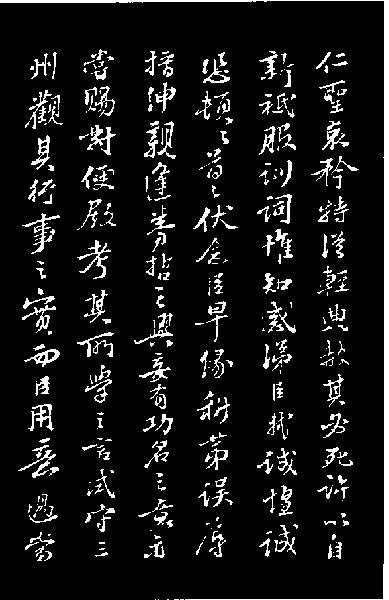 仁聖哀矜特從輕典赦其必死許以自
新祗服訓詞惟知感涕臣軾誠惶誠
恐頓々首々伏念臣早緣科第誤
搢紳親逢睿哲之興妄有功名之意亦
嘗賜對便殿考其所學之言試守三
州觀其行事之實而臣用意過當